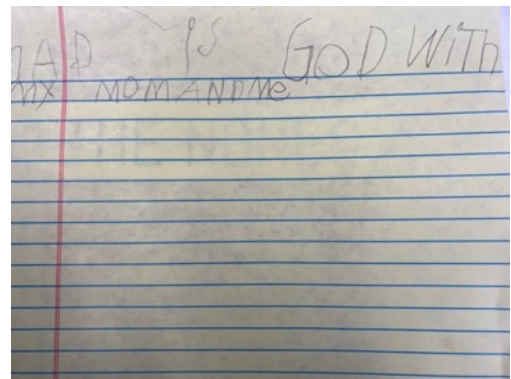 DAD IS GOD WITH
MY MOM AND Me